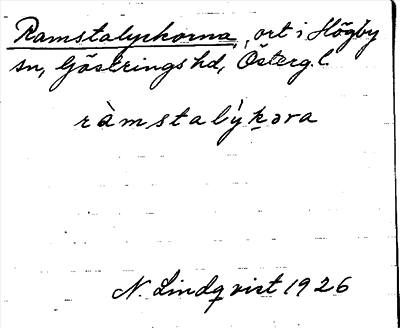 Ramstalyckorna, ort i Högby
sn, Göstrings hd, Östergl
ràmstalýkəra
N. Lindqvist 1926